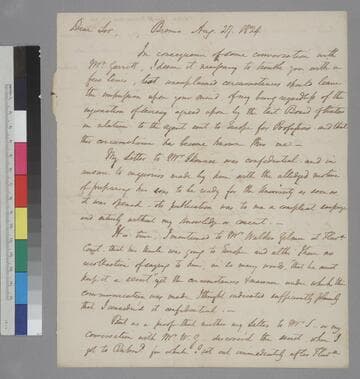 Dear Sir, Bremo Aug. 27. 1824
In consequence of some conversation with
Mr Garrett, I deem it necessary to trouble you with a
few lines, lest unexplained circumstances should leave
the impression upon your mind of my being regardless of the
injunction of secrecy agreed upon by the last Board of Visitors
in relation to the agent sent to Europe for Professors and that
this circumstance has become known thro me —
My Letter to Mr was confidential and in
answer to inquiries made by him with the alledged motive
of preparing his son to be ready for the University as soon as
it was opened. Its publication was to me a compleat surprize
and entirely without my knowledge or consent. —
It is true I mentioned to Mr Walker Gilmer at
Court, that his Uncle was going to Europe and altho I have no
recollection of saying to him, in so many words, that he must
keep it a secret yet the circumstances & manner under which the
communication was made I thought indicated sufficiently plainly
that I considered it confidential: —
But as a proof that neither my Letter to Mr nor my
conversation with Mr W. G. discovered the secret when I
got to for which I set out immediately after